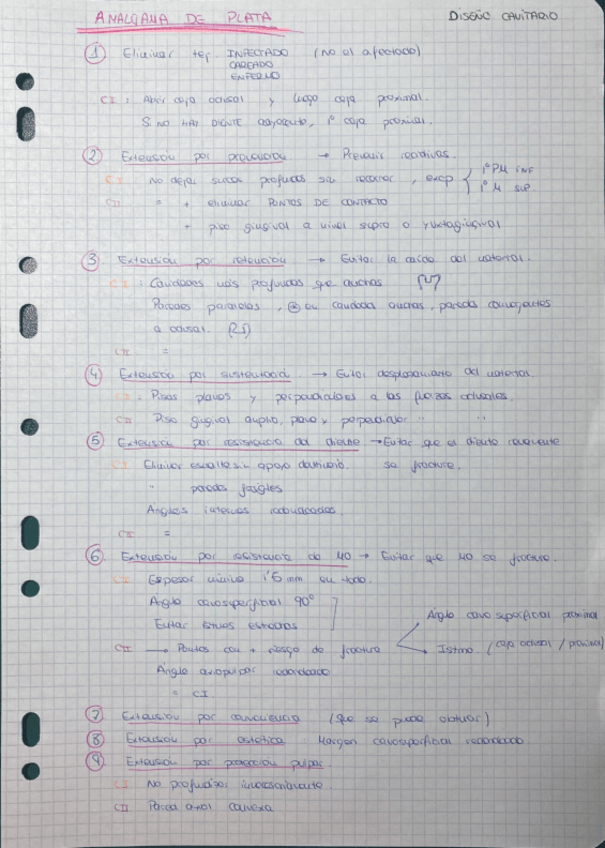 AMALGAMA DE PLATA
DISEÑO CAVITARIO
① Eliminar tej. INFECTADO (no el afectado)
CAREADO
ENFERMO
CI: Abrir caja oclusal y luego caja proximal.
Si no HAY DIENTE adyacente, 1º caja proximal.
② Extensión por prevención → Prevenir recidivas.
CI No dejar surcos profundos sin recorrer, excep { 1º PM INF
1º M SUP.
CII = + eliminar PUNTOS DE CONTACTO
+ piso gingival a nivel supra o yuxtagingival
③ Extensión por retención → Evitar la caída del material.
CI: Cavidades más profundas que anchas
Paredes paralelas, ⊕ en cavidades anchas, paredes convergentes
a oclusal.
CII =
④ Extensión por sustentación → Evitar desplazamiento del material.
CI: Pisos planos y perpendiculares a las fuerzas oclusales.
CII Piso gingival amplio, plano y perpendicular " "
⑤ Extensión por resistencia del diente → Evitar que el diente remanente
CI Eliminar esmalte sin apoyo dentinario. se fracture.
" paredes frágiles
Ángulos internos redondeados
CII =
⑥ Extensión por resistencia de MO → Evitar que MO se fracture.
CI Espesor mínimo 1'5 mm en todo.
Ángulo cavosuperficial 90º
Evitar istmos estrechos
Ángulo cavo superficial proximal
CII → Puntos con + riesgo de fractura
Istmo. (caja oclusal / proximal)
Ángulo axiopulpar redondeado
= CI.
⑦ Extensión por conveniencia (Que se pueda obturar)
⑧ Extensión por estética Margen cavosuperficial redondeado
⑨ Extensión por protección pulpar.
CI No profundizar innecesariamente
CII Pared axial convexa